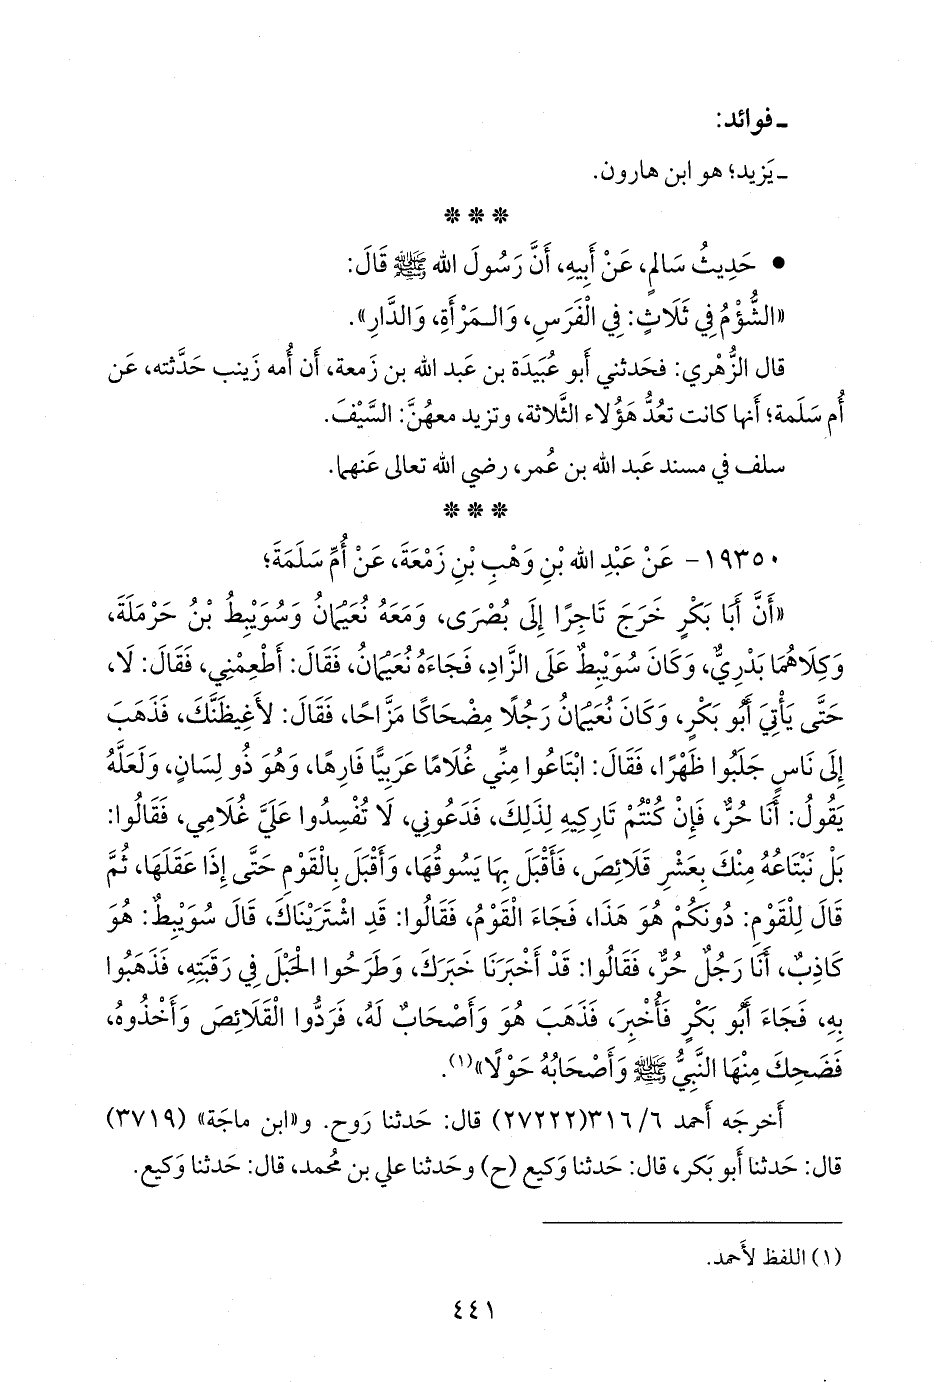 ـ فوائد:
ـ يَزيد؛ هو ابن هارون.
* * *
• حَدِيثُ سَالِمٍ، عَنْ أَبِيهِ، أَنَّ رَسُولَ الله ﷺ قَالَ:
«الشُّؤْمُ فِي ثَلَاثٍ: فِي الْفَرَسِ، وَالـمَرْأَةِ، وَالدَّارِ».
قال الزُّهْري: فحَدثني أَبو عُبَيدَة بن عَبد الله بن زَمعة، أَن أُمه زَينب حَدَّثته، عَن
أُم سَلَمة؛ أَنها كانت تعُدُّ هَؤُلاء الثَّلاثة، وتزيد معهُنَّ: السَّيْفَ.
سلف في مسند عَبد الله بن عُمر، رضي الله تعالى عَنهما.
* * *
١٩٣٥٠- عَنْ عَبْدِ الله بْنِ وَهْبِ بْنِ زَمْعَةَ، عَنْ أُمِّ سَلَمَةَ؛
«أَنَّ أَبَا بَكْرٍ خَرَجَ تَاجِرًا إِلَى بُصْرَى، وَمَعَهُ نُعَيْمَانُ وَسُوَيْبِطُ بْنُ حَرْمَلَةَ،
وَكِلَاهُمَا بَدْرِيٌّ، وَكَانَ سُوَيْبِطٌ عَلَى الزَّادِ، فَجَاءَهُ نُعَيْمَانُ، فَقَالَ: أَطْعِمْنِي، فَقَالَ: لَا،
حَتَّى يَأْتِيَ أَبُو بَكْرٍ، وَكَانَ نُعَيْمَانُ رَجُلًا مِضْحَاكًا مَزَّاحًا، فَقَالَ: لأَغِيظَنَّكَ، فَذَهَبَ
إِلَى نَاسٍ جَلَبُوا ظَهْرًا، فَقَالَ: ابْتَاعُوا مِنِّي غُلَامًا عَرَبِيًّا فَارِهًا، وَهُوَ ذُو لِسَانٍ، وَلَعَلَّهُ
يَقُولُ: أَنَا حُرٌّ، فَإِنْ كُنْتُمْ تَارِكِيهِ لِذَلِكَ، فَدَعُونِي، لَا تُفْسِدُوا عَلَيَّ غُلَامِي، فَقَالُوا:
بَلْ نَبْتَاعُهُ مِنْكَ بِعَشْرِ قَلَائِصَ، فَأَقْبَلَ بِهَا يَسُوقُهَا، وَأَقْبَلَ بِالْقَوْمِ حَتَّى إِذَا عَقَلَهَا، ثُمَّ
قَالَ لِلْقَوْمِ: دُونَكُمْ هُوَ هَذَا، فَجَاءَ الْقَوْمُ، فَقَالُوا: قَدِ اشْتَرَيْنَاكَ، قَالَ سُوَيْبِطٌ: هُوَ
كَاذِبٌ، أَنَا رَجُلٌ حُرٌّ، فَقَالُوا: قَدْ أَخْبَرَنَا خَبَرَكَ، وَطَرَحُوا الْحَبْلَ فِي رَقَبَتِهِ، فَذَهَبُوا
بِهِ، فَجَاءَ أَبُو بَكْرٍ فَأُخْبِرَ، فَذَهَبَ هُوَ وَأَصْحَابٌ لَهُ، فَرَدُّوا الْقَلَائِصَ وَأَخْذُوهُ،
فَضَحِكَ مِنْهَا النَّبِيُّ ﷺ وَأَصْحَابُهُ حَوْلًا»(١).
أَخرجَه أَحمد ٦/ ٣١٦(٢٧٢٢٢) قال: حَدثنا رَوح. و«ابن ماجة» (٣٧١٩)
قال: حَدثنا أَبو بَكر، قال: حَدثنا وَكيع (ح) وحَدثنا علي بن مُحمد، قال: حَدثنا وَكيع.
(١) اللفظ لأَحمد.
٤٤١